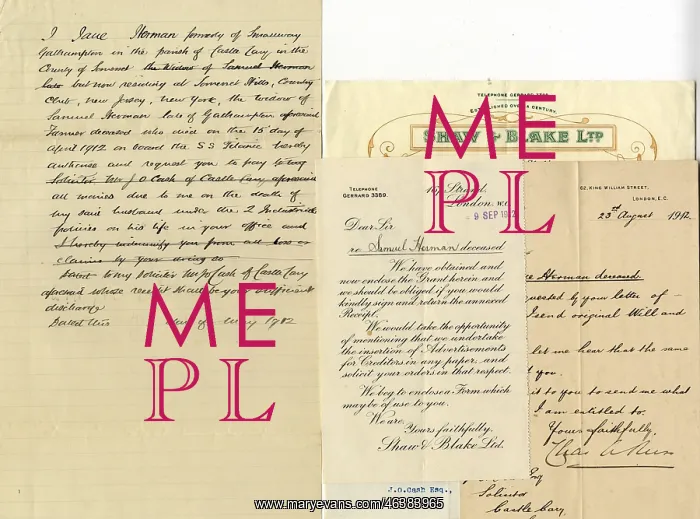 I Jane Herman formerly of Smallway
Galhampton in the parish of Castle Cary in the
County of Somerset the Widow of Samuel Herman
late but now residing at Somerset Hills, Country
Club, New Jersey, New York, the widow of
Samuel Herman late of Galhampton aforesaid
Farmer deceased who died on the 15 day of
april 1912 on board the SS Titanic hereby
authorise and request you to pay to my
Solicitor Mr J O Cash of Castle Cary aforesaid
all monies due to me on the death of
my said husband under the 2 Industrial
policies on his life in your office and
I hereby indemnify you from all loss or
claims by your doing so
to my Solicitor Mr J O Cash of Castle Cary
aforesaid whose receipt shall be your sufficient
discharge
Dated this day of May 1912
TELEPHONE GERRARD 3359
ESTABLISHED OVER A CENTURY
SHAW & BLAKE LTD
TELEPHONE
GERRARD 3359.
167, Strand,
London. W.C.
9 SEP 1912
Dear Sir
re Samuel Herman deceased
We have obtained and
now enclose the Grant herein and
we should be obliged if you would
kindly sign and return the annexed
Receipt.
We would take the opportunity
of mentioning that we undertake
the insertion of Advertisements
for Creditors in any paper, and
solicit your orders in that respect.
We beg to enclose a Form which
may be of use to you.
We are,
Yours faithfully,
Shaw & Blake Ltd.
J.O.Cash Esq.,
62, KING WILLIAM STREET,
LONDON, E.C.
23rd August 1912
Herman deceased
requested by your letter of
send original Will and
let me hear that the same
you.
it to you to send me what
I am entitled to.
Yours faithfully,
Solicitor
Castle Cary
ME
PL
ME
PL
www.maryevans.com/46389965